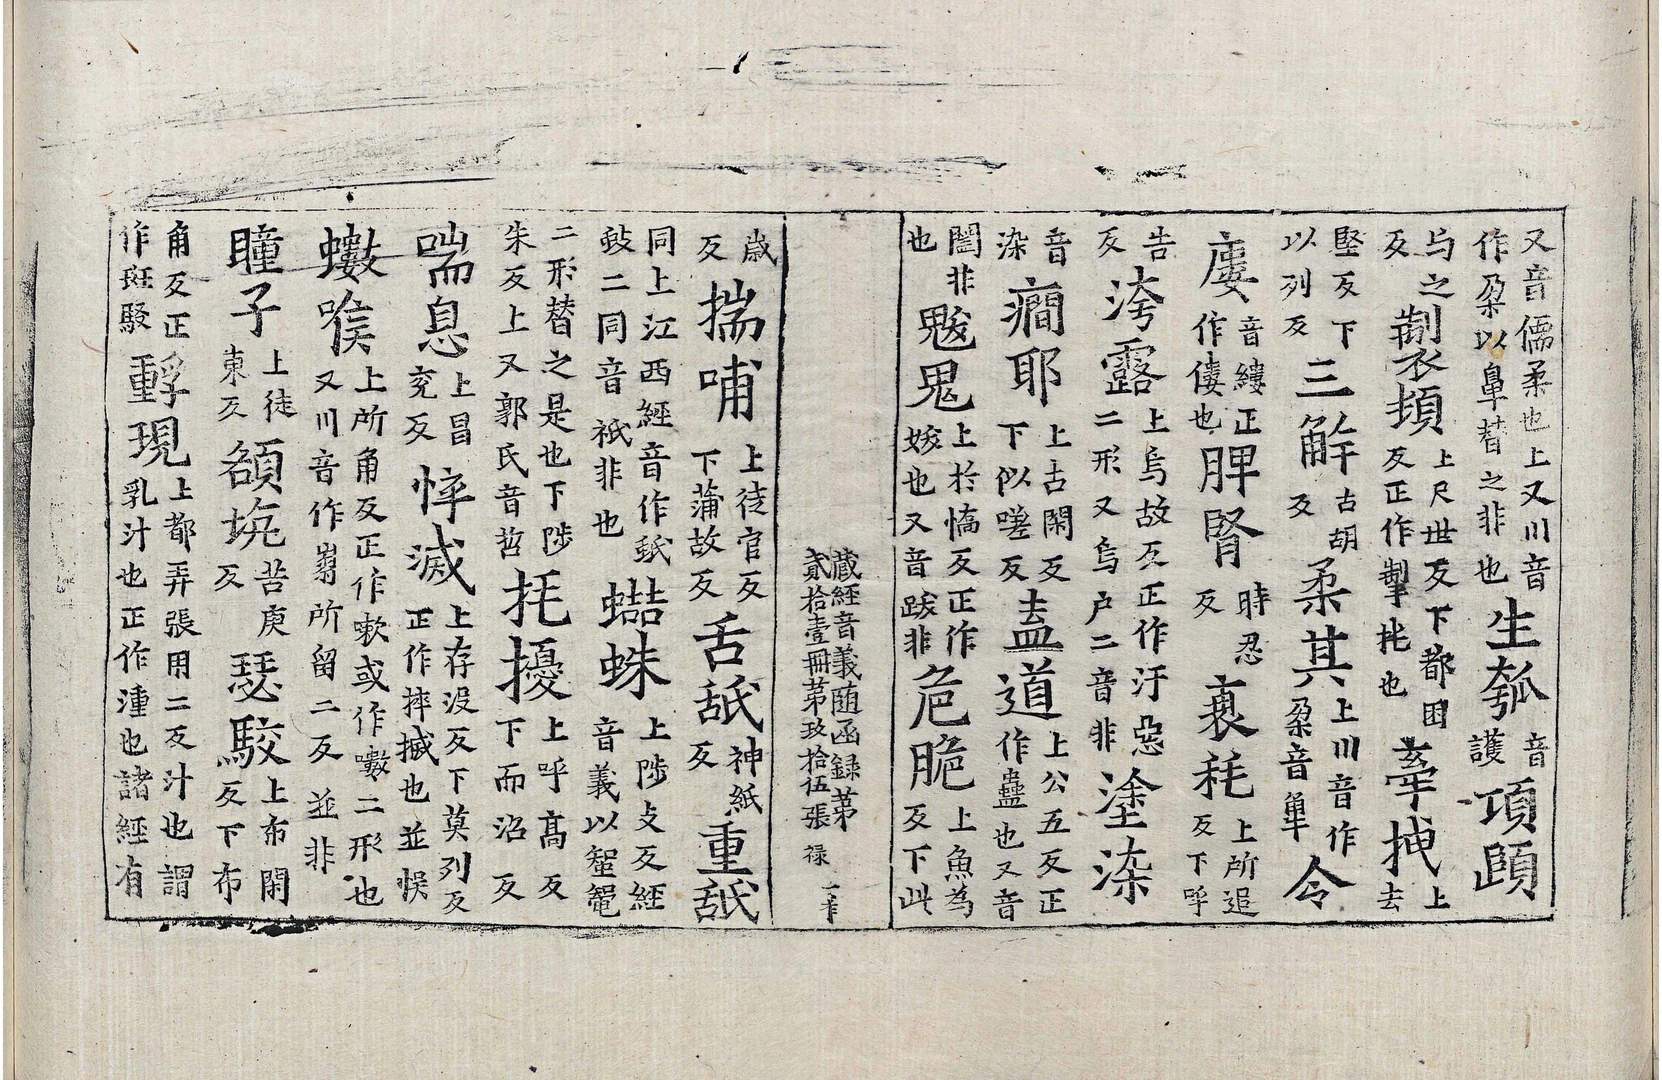 又音儒柔也上又川音
作𡖉以𠌫替之非也
生瓠
音
護
項𩑶
与之
反
㓡頞
上尺世反下都困
反正作掣扽也
牽拽
上
去
堅反下
以列反
三解
古胡
反
柔其
上川音作
𡖉音㒹
令
廔
音縷正
作僂也
脾腎
時忍
反
裹耗
上所追
反下呼
告
反
洿露
上烏故反正作汙惡
二形又烏户二音非
塗染
音
染
癎耶
上古閑反
下似嗟反
盍道
上公五反正
作蠱也又音
闔非
也
魃鬼
上於憍反正作
妭也又音跋非
危脆
上魚為
反下此
藏經音義随函録第
貳拾壹冊第玖拾伍張 禄
歲
反
揣哺
上徒官反
下蒲故反
舌䑛
神紙
反
重䑛
同上江西經音作䑛
䑛二同音祇非也
蠩蛛
上陟支反經
音義以蟹鼅
二形替之是也下陟
朱反上又郭氏音哲
㧌擾
上呼髙反
下而沼反
喘息
上昌
兖反
悴滅
上存没反下莫列反
正作捽搣也並悮
𧓍喉
上所角反正作嗽或作㗋二形也
又川音作嵏所留二反並非
瞳子
上徒
東反
額坑
苦庚
反
瑟駮
上布閑
反下布
角反正
作斑駮
𤯝現
上都弄張用二反汁也謂
乳汁也正作湩也諸經有